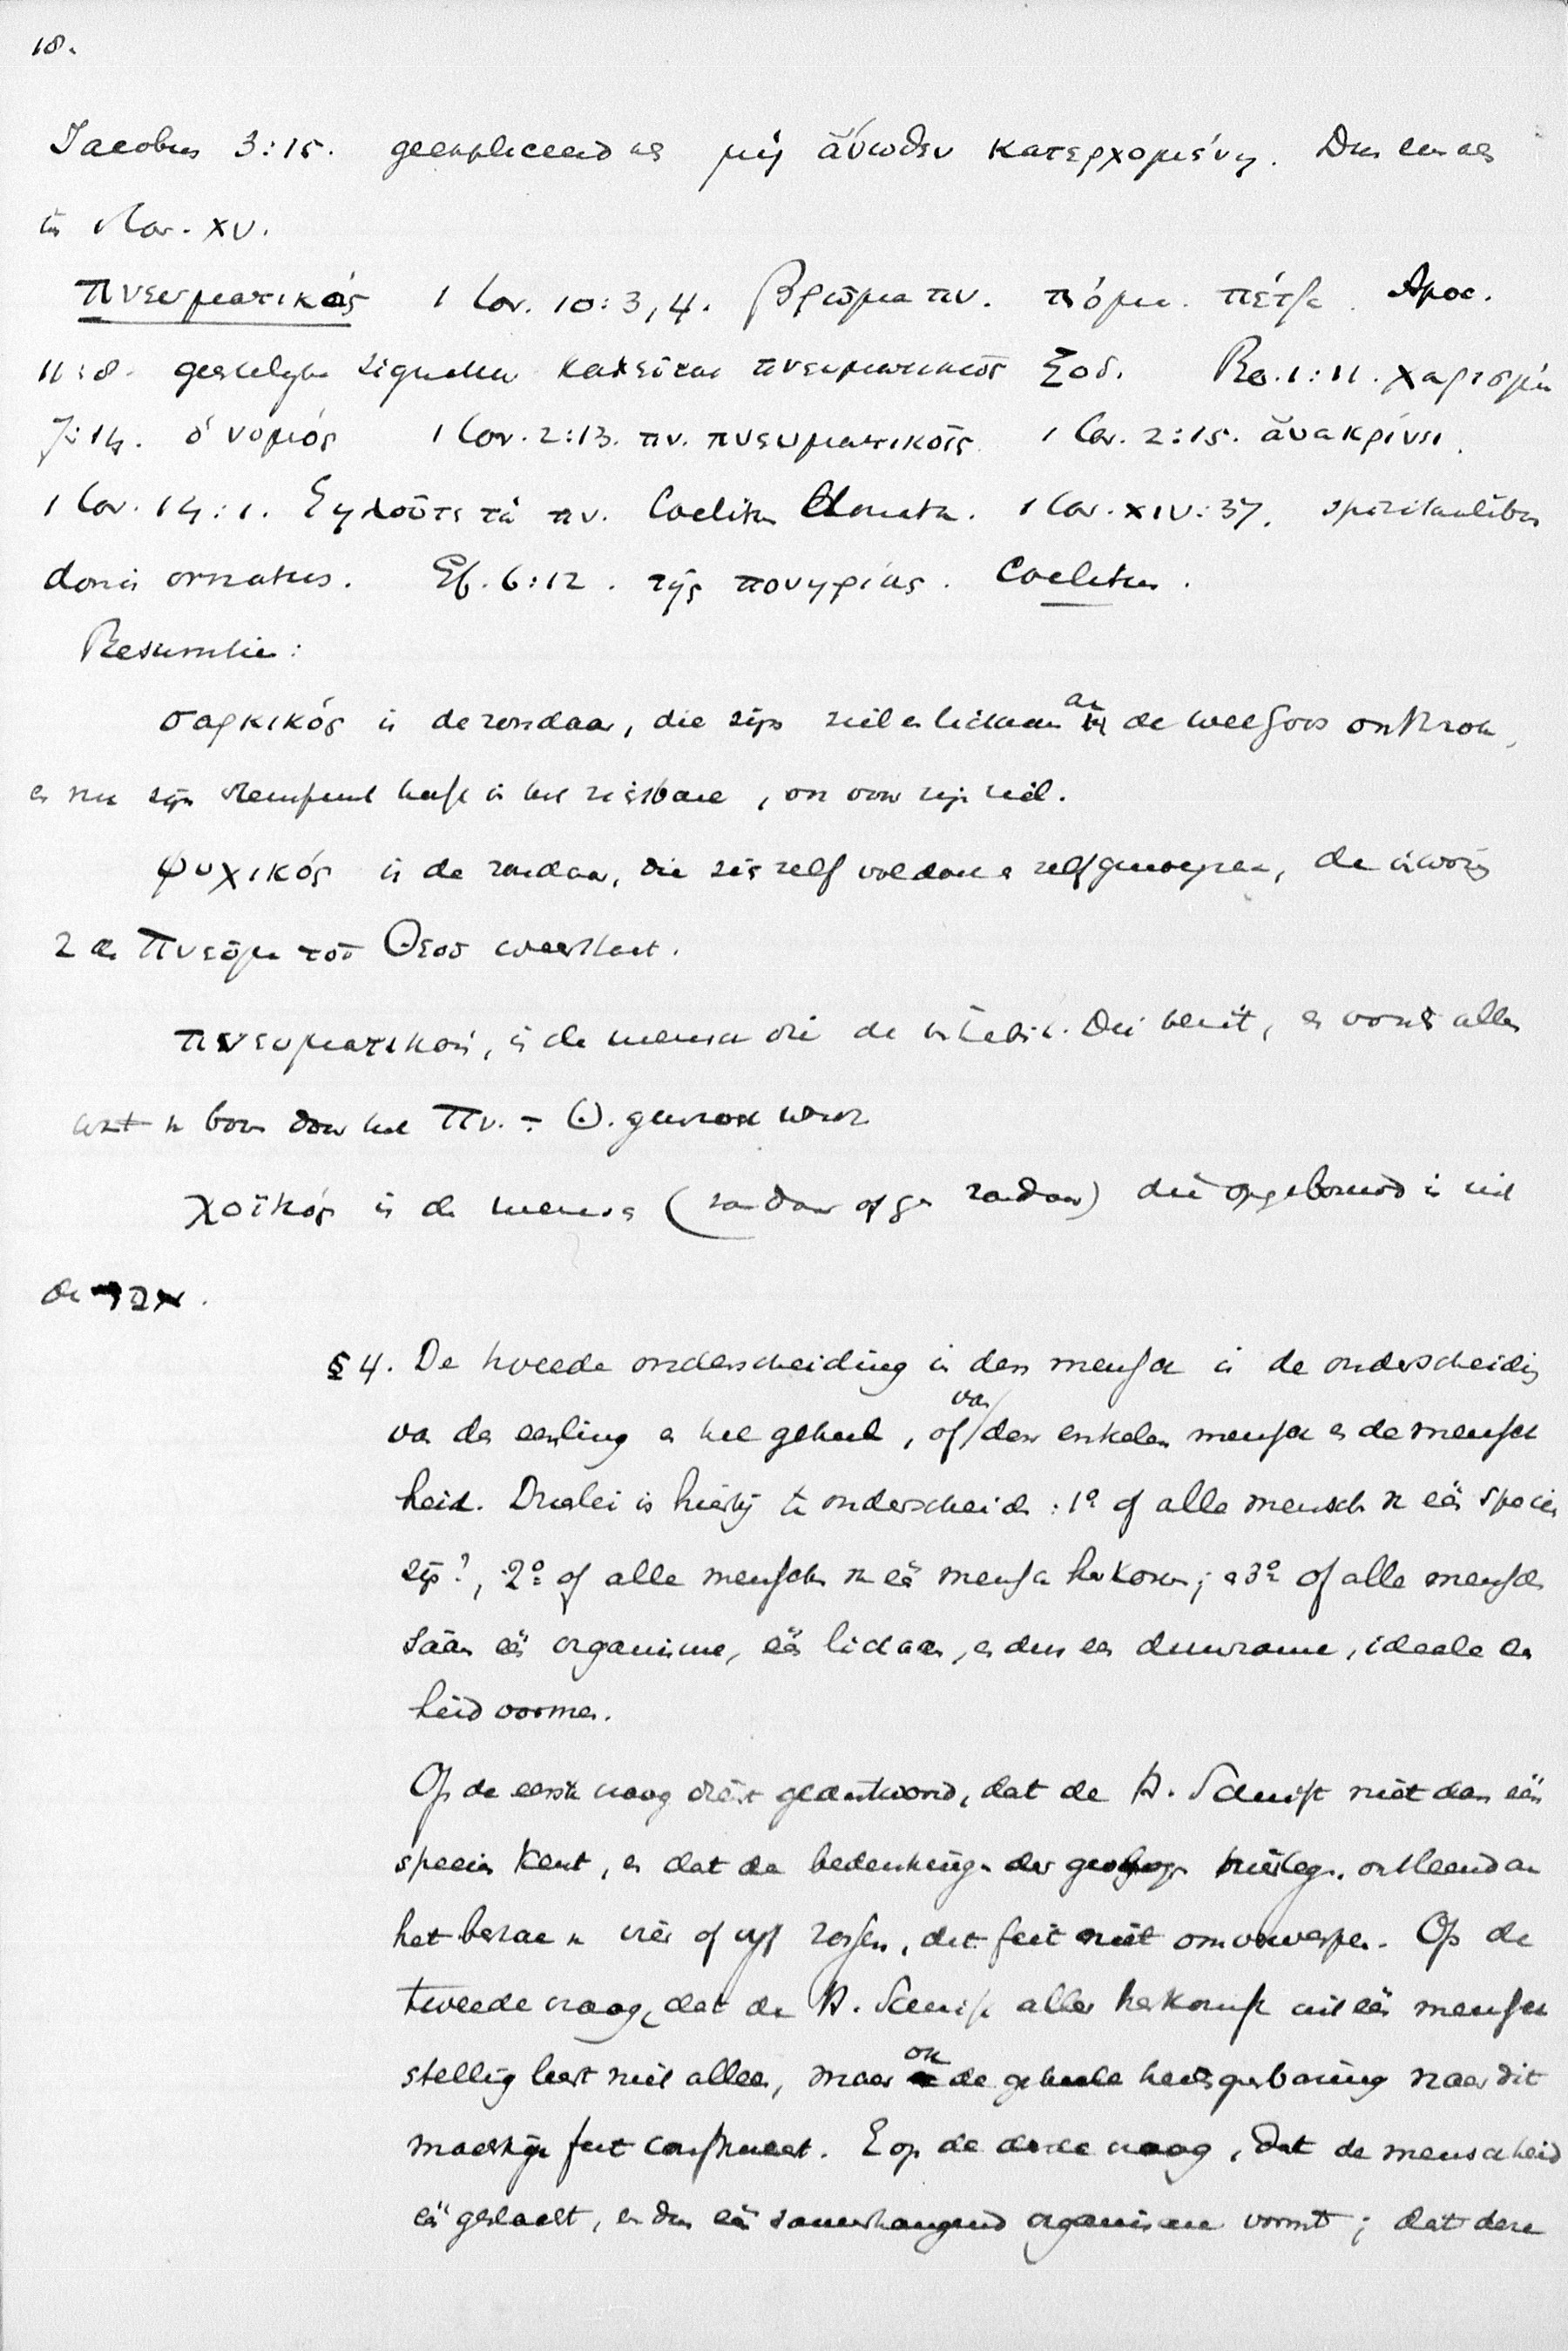 18.
Jacobus 3:15. geexpliceerd als μὴ ἄνωθεν κατερχομένη. Dus een als
in 1 Cor. XV.
πνευματικός 1 Cor. 10:3,4. βρῶμα πν. πόμα. πέτρα. Apoc.
11:8. καλεῖται πνευματικῶς Σοδ. Ro. 1:11. χάρισμα
7:14. ὁ νομός 1 Cor. 2:13. πν. πνευματικοῖς 1 Cor. 2:15. ἀνακρίνει.
1 Cor. 14:1. ζηλοῦτε τὰ πν. Coelitus donata. 1 Cor. XIV:37. spiritualibus
donis ornatus. Ef. 6:12. τῆς πονηρίας. Coelitus.
Resumtie:
σαρκικός is de zondaar, die zijn ziel en lichaam aan de wet Gods onttrok,
en nu zijn steunpunt heeft in het zichtbare, ook voor zijn ziel.
ψυχικός is de zondaar, die zich zelf voldoet en zelfgenoegzaam, de inwoning
v. h. Πνεῦμα τοῦ Θεοῦ weerstaat.
πνευματικός, is de mensch die de inhabit. Dei bezit, en voorts alles
wat in hem door het Πν. τ. Θ. gewrocht wordt
χοϊκός is de mensch (zondaar of geen zondaar) die opgebouwd is uit
de עפר.
§ 4. De tweede onderscheiding in den mensch is de onderscheiding
van den eenling en het geheel, of van den enkelen mensch en de mensch
heid. Drieërlei is hierbij te onderscheiden: 1º of alle menschen één species
zijn?, 2º of alle menschen uit één mensch herkomen; en 3º of alle menschen
saam één organisme, één lichaam, en dus een duurzame, ideale een
heid vormen.
Op de eerste vraag dient geantwoord, dat de H. Schrift niet dan één
species kent, en dat de bedenkingen der hiertegen, ontleend aan
het bestaan van vier of vijf rassen, dit feit niet omverwerpen. Op de
tweede vraag, dat de H. Schrift aller herkomst uit één mensch
stellig leert niet alleen, maar ook de geheele heilsopenbaring naar dit
machtige feit construeert. En op de derde vraag, dat de menschheid
één geslacht, en dus één samenhangend organisme vormt; dat deze